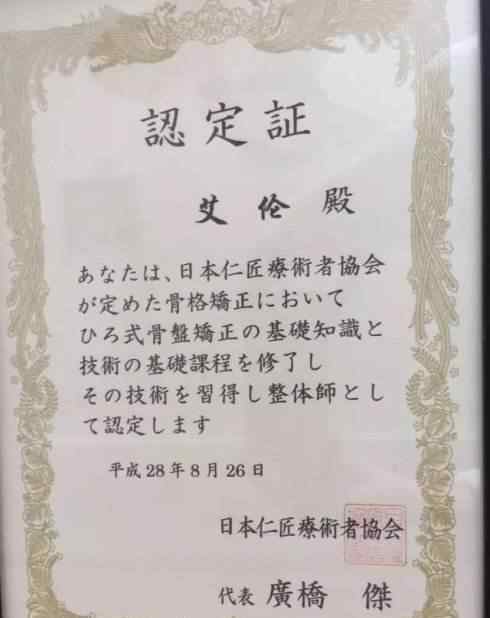 認定証
艾伦 殿
あなたは、日本仁匠療術者協会
が定めた骨格矯正において
ひろ式骨盤矯正の基礎知識と
技術の基礎課程を修了し
その技術を習得し整体師とし
て認定します
平成28年8月26日
日本仁匠療術者協会
代表 廣橋 傑